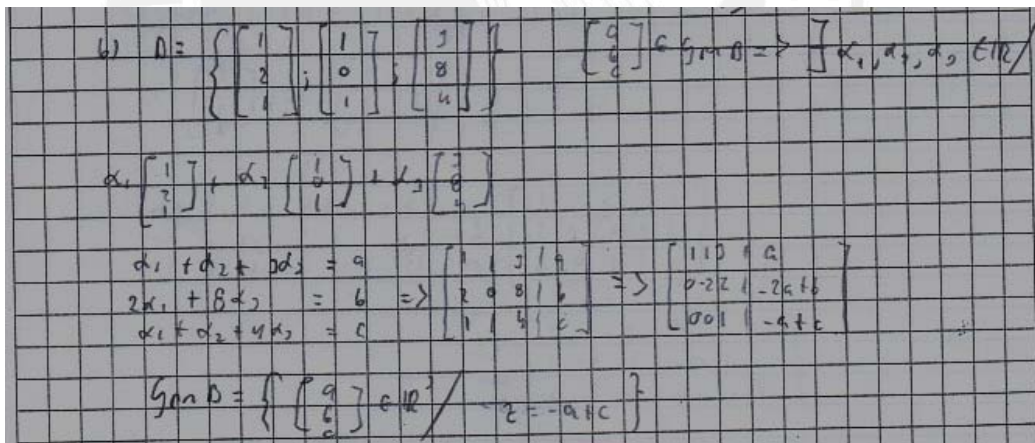 b) D = { [1 2 1] ; [1 0 1] ; [3 8 4] } [a b c] ∈ Gen D => ∃ α₁, α₂, α₃ ∈ ℝ /
α₁ [1 2 1] + α₂ [1 0 1] + α₃
α₁ + α₂ + 3α₃ = a
2α₁ + 8α₃ = b
α₁ + α₂ + 4α₃ = c
=> [1 1 3 | a
2 0 8 | b
1 1 4 | c]
=> [1 1 3 | a
0 -2 2 | -2a+b
0 0 1 | -a+c]
Gen D = { [a b c] ∈ ℝ³ / z = -a+c }